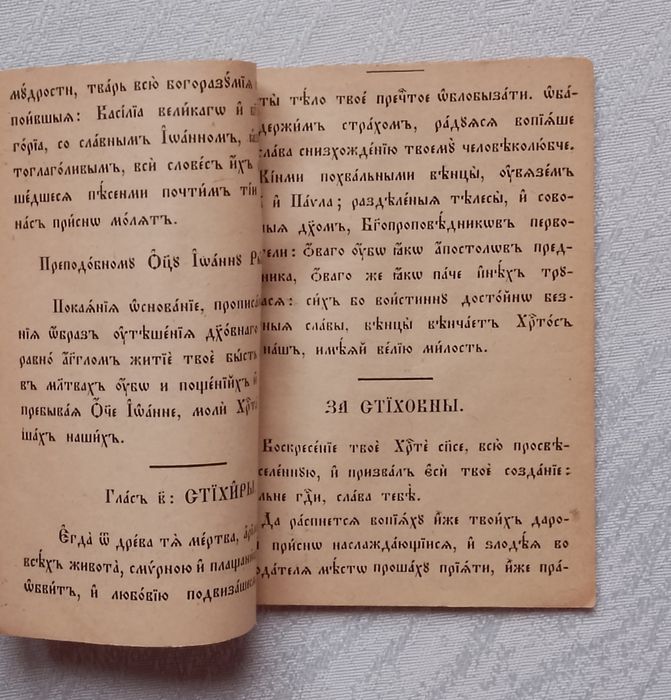 мꙋ́дрости, тва́рь всю̀ богоразꙋ́мїѧ
пои́вшыѧ: Васі́лїа вели́каго и҆
го́рїа, со сла́внымъ І҆ѡа́нномъ,
тоглаго́ливымъ, всѝ слове́съ и҆́хъ
ше́дшесѧ пѣ́сенми почти́мъ: ті́и
на́съ при́снѡ мо́лѧтъ.
Преподо́бному Ѻ҆ц҃ꙋ̀ І҆ѡа́ннꙋ
Покаѧ́нїѧ ѡ҆снова́нїе, прописа́
нїѧ ѡ҆́браз ᲂу҆тѣше́нїѧ дꙋхо́внагѡ
равно̀ а҆́гг҃лом житїѐ твоѐ бы́сть
въ мл҃твах ᲂу҆́бѡ и поще́нїихъ и҆
пребыва́ѧ Ѻ҆́ч҃е І҆ѡа́нне, молѝ Хрⷭ҇та̀
ша́хъ на́шихъ.
Гла́съ в҃: СТІХИ҆́РЫ
Є҆гда̀ ѿ дре́ва тѧ̀ ме́ртва,
всѣ́хъ живота̀, смѵ́рною и҆ плащани́
ѡ҆бви́тъ, и҆ любо́вїю подвиза́шесѧ
ты̀ тѣ́ло твоѐ пречⷭ҇тое ѡ҆блобыза́ти. ѻ҆ба́
держи́мъ стра́хомъ, ра́дꙋѧсѧ вопїѧ́ше
сла́ва снизхожде́нїю твоемꙋ̀ человѣколю́бче.
Кі́ими похва́льными вѣнцы̀, ᲂу҆вѧзе́мъ
и҆ Па́ѵла; раздѣле́ныѧ тѣлесы̀, и҆ сово-
ныѧ дх҃омъ, Бг҃опроповѣ́дникѡвъ перво-
тели: ѻ҆́ваго ᲂу҆́бѡ ꙗ҆́кѡ а҆по́столѡвъ пред-
ника, ѻ҆́ваго же ꙗ҆́кѡ па́че и҆нѣ́хъ трꙋ-
асѧ: си́хъ бо вои́стиннꙋ досто́йнѡ без-
ныѧ сла́вы, вѣнцы̀ вѣнча́етъ Хрⷭ҇то́съ
на́шъ, и҆мѣ́ѧй ве́лїю ми́лость.
ЗА СТІХО́ВНЫ.
Воскресе́нїе твоѐ Хрⷭ҇тѐ сп҃се, всю̀ просвѣ-
селе́ннꙋю, и҆ призва́лъ є҆сѝ твоѐ созда́нїе:
льне гдⷭ҇и, сла́ва тебѣ̀.
Да ра́спнетсѧ вопїѧ́хꙋ и҆̀же твои́хъ даро-
при́снѡ наслажда́ющїисѧ, и҆ злодѣ́ѧ во
ода́телѧ мѣ́стѡ проша́хꙋ прїѧ́ти, и҆̀же пра-